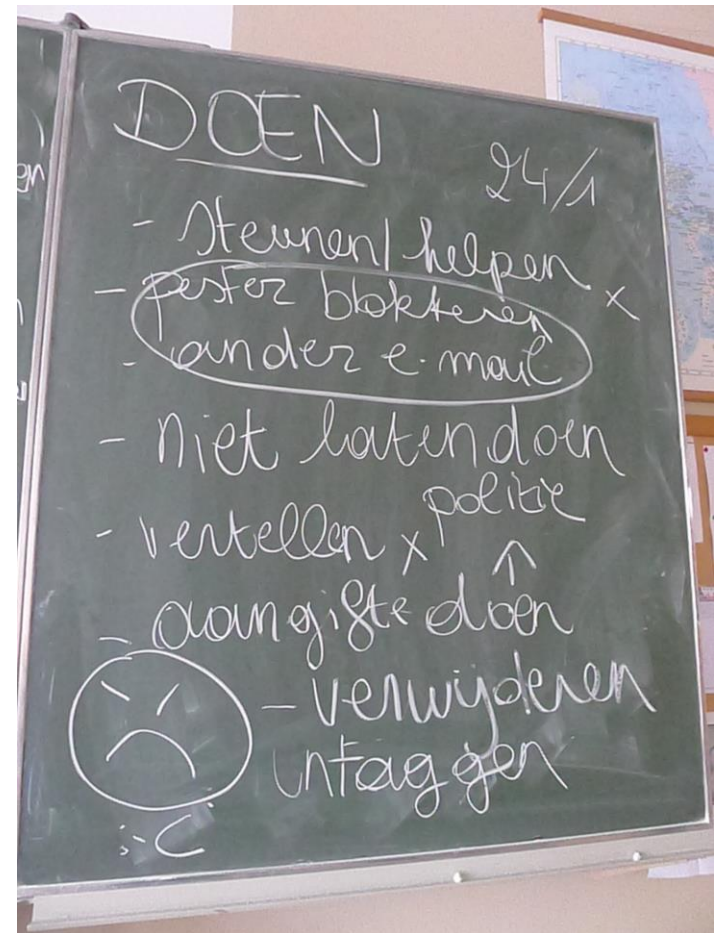 DOEN
24/1
- steunen/helpen x
- pester blokkeren
- ander e-mail
- niet laten doen
- vertellen x
politie
↑
- aangifte doen
- verwijderen
untaggen
;-(